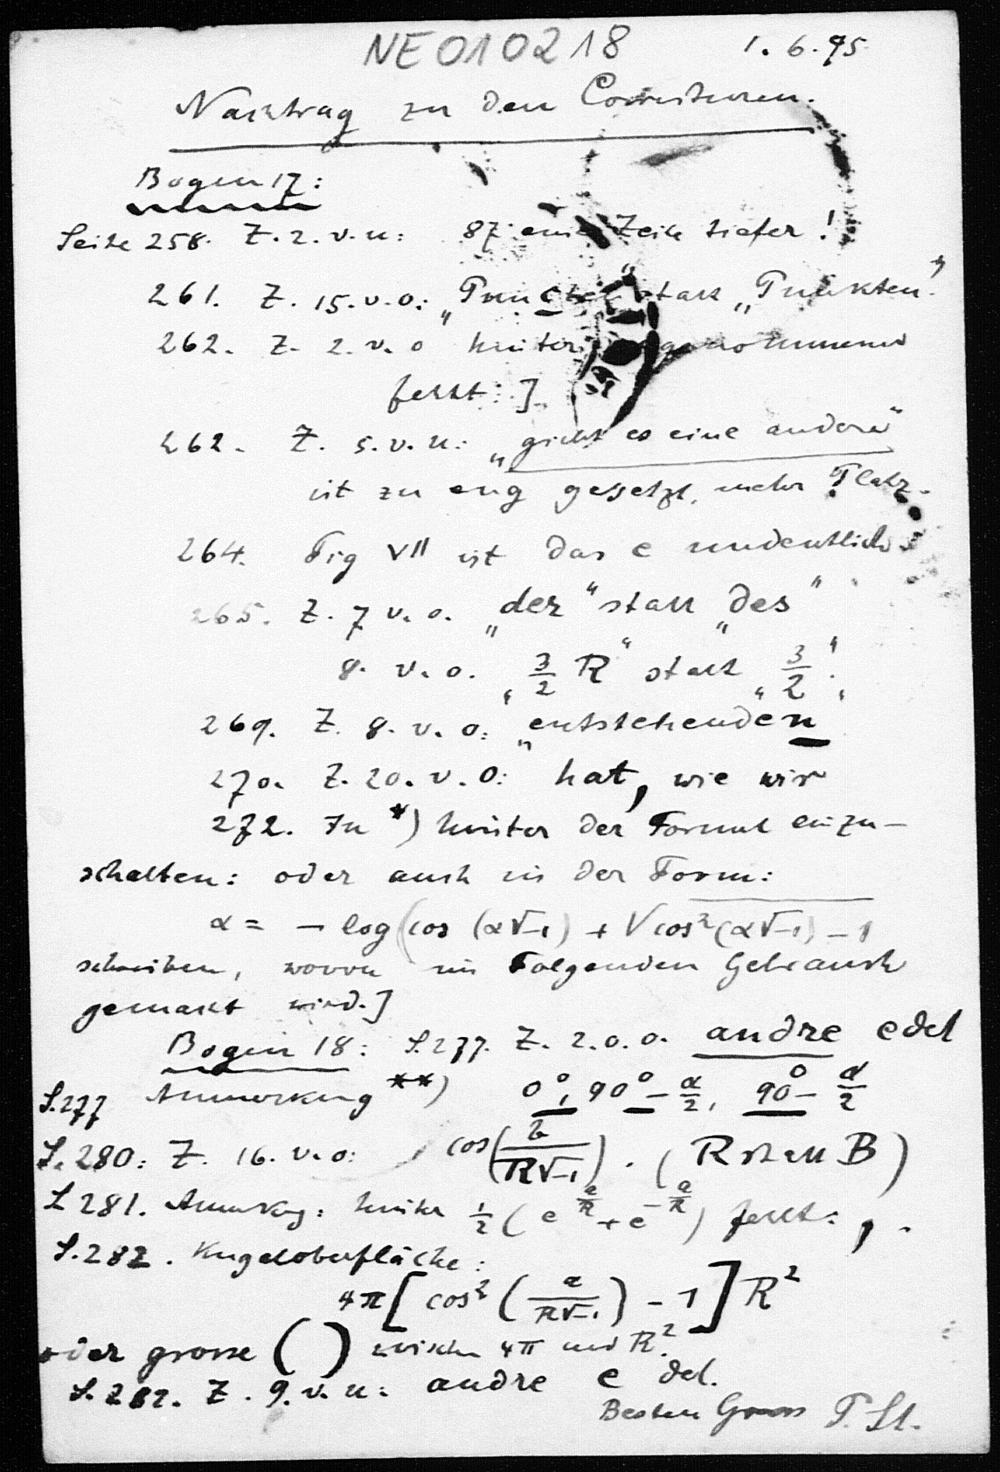 NE010218 1.6.95
Nachtrag zu den Correcturen.
Bogen 17:
Seite 258. Z. 2. v. u: 87 eine Zeile tiefer!
261. Z. 15. v. o: „Puncten" statt „Punkten".
262. Z. 2. v. o hinter genommenen
fehlt: ]
262. Z. 5. v. u: „giebt es eine andere"
ist zu eng gesetzt, mehr Platz.
264. Fig VII ist das e undeutlich
265. Z. 7 v. o. „der" statt „des"
8. v. o. „3/2 R" statt „3/2".
269. Z. 8. v. o: „entstehenden"
270. Z. 20. v. o: hat, wie wir
272. In *) hinter der Formel einzu-
schalten: oder auch in der Form:
α = - log (cos (α√-1) + √cos²(α√-1) - 1
schreiben, wovon im Folgenden Gebrauch
gemacht wird.]
Bogen 18: S. 277. Z. 2. o. o. andre e del
S. 277 Anmerkung **) 0°, 90° - α/2, 90° - α/2
S. 280: Z. 16. v. o: cos (b/R√-1). (R statt B)
S. 281. Anmerkg: hinter 1/2 (e^{a/R} + e^{-a/R}) fehlt: , .
S. 282. Kugeloberfläche:
4π [cos² (a/R√-1) - 1] R²
oder grosse ( ) zwischen 4π und R².
S. 282. Z. 9. v. u: andre e del.
Besten Gruss P. St.